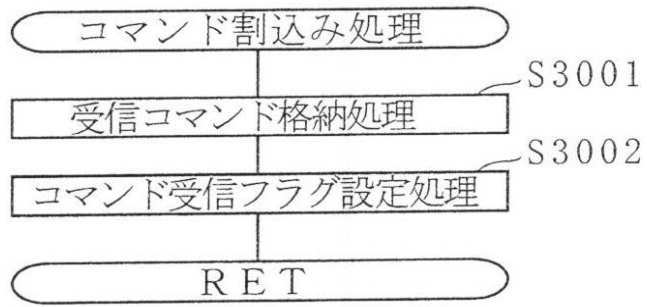 コマンド割込み処理
S3001
受信コマンド格納処理
S3002
コマンド受信フラグ設定処理
RET